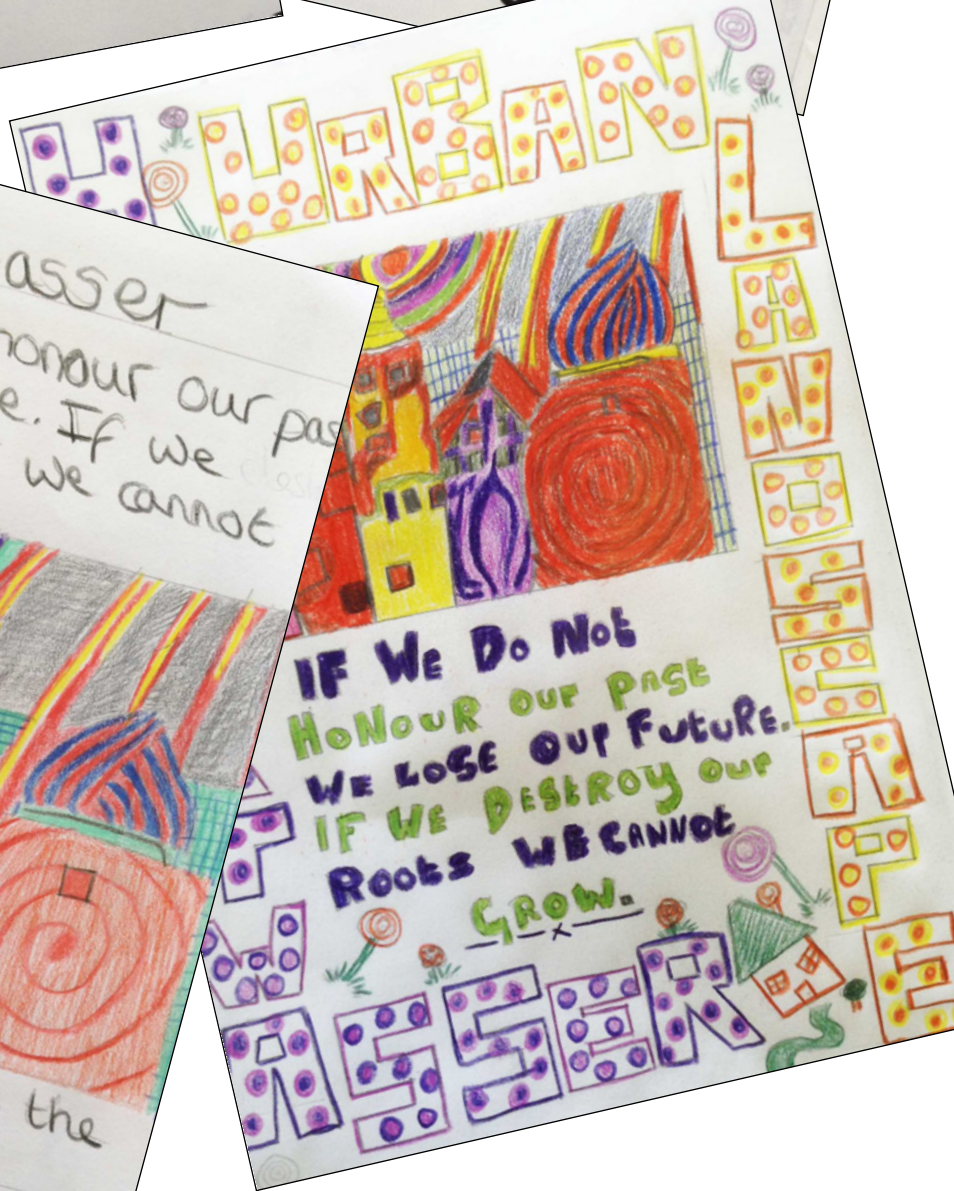 asser
honour our pas
e. If we
we cannot
the
H
URBAN
LANDSCAPE
IF WE DO NOT
HONOUR OUR PAST
WE LOSE OUR FUTURE.
IF WE DESTROY OUR
ROOTS WE CANNOT
GROW.
T
W
ASSER